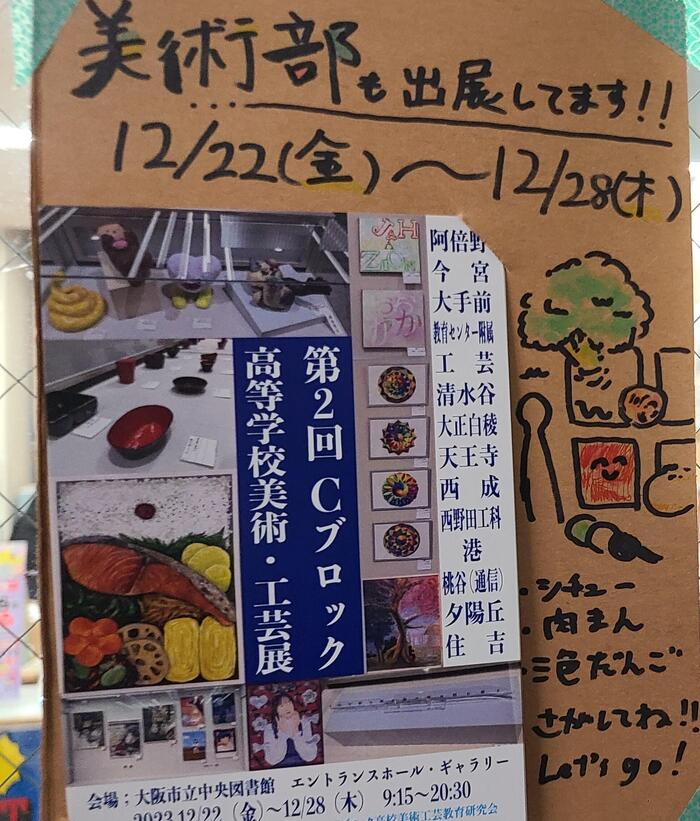 美術部も出展してます!!
12/22(金)～12/28(木)
阿倍野
今宮
大手前
教育センター附属
工芸
清水谷
大正白稜
天王寺
西成
西野田工科
港
桃谷(通信)
夕陽丘
住吉
第2回 Cブロック
高等学校美術・工芸展
・シチュー
・肉まん
・三色だんご
さがしてね!!
Let's go!
会場；大阪市立中央図書館 エントランスホール・ギャラリー
2023.12/22（金）～12/28（木） 9:15～20:30
高校美術工芸教育研究会